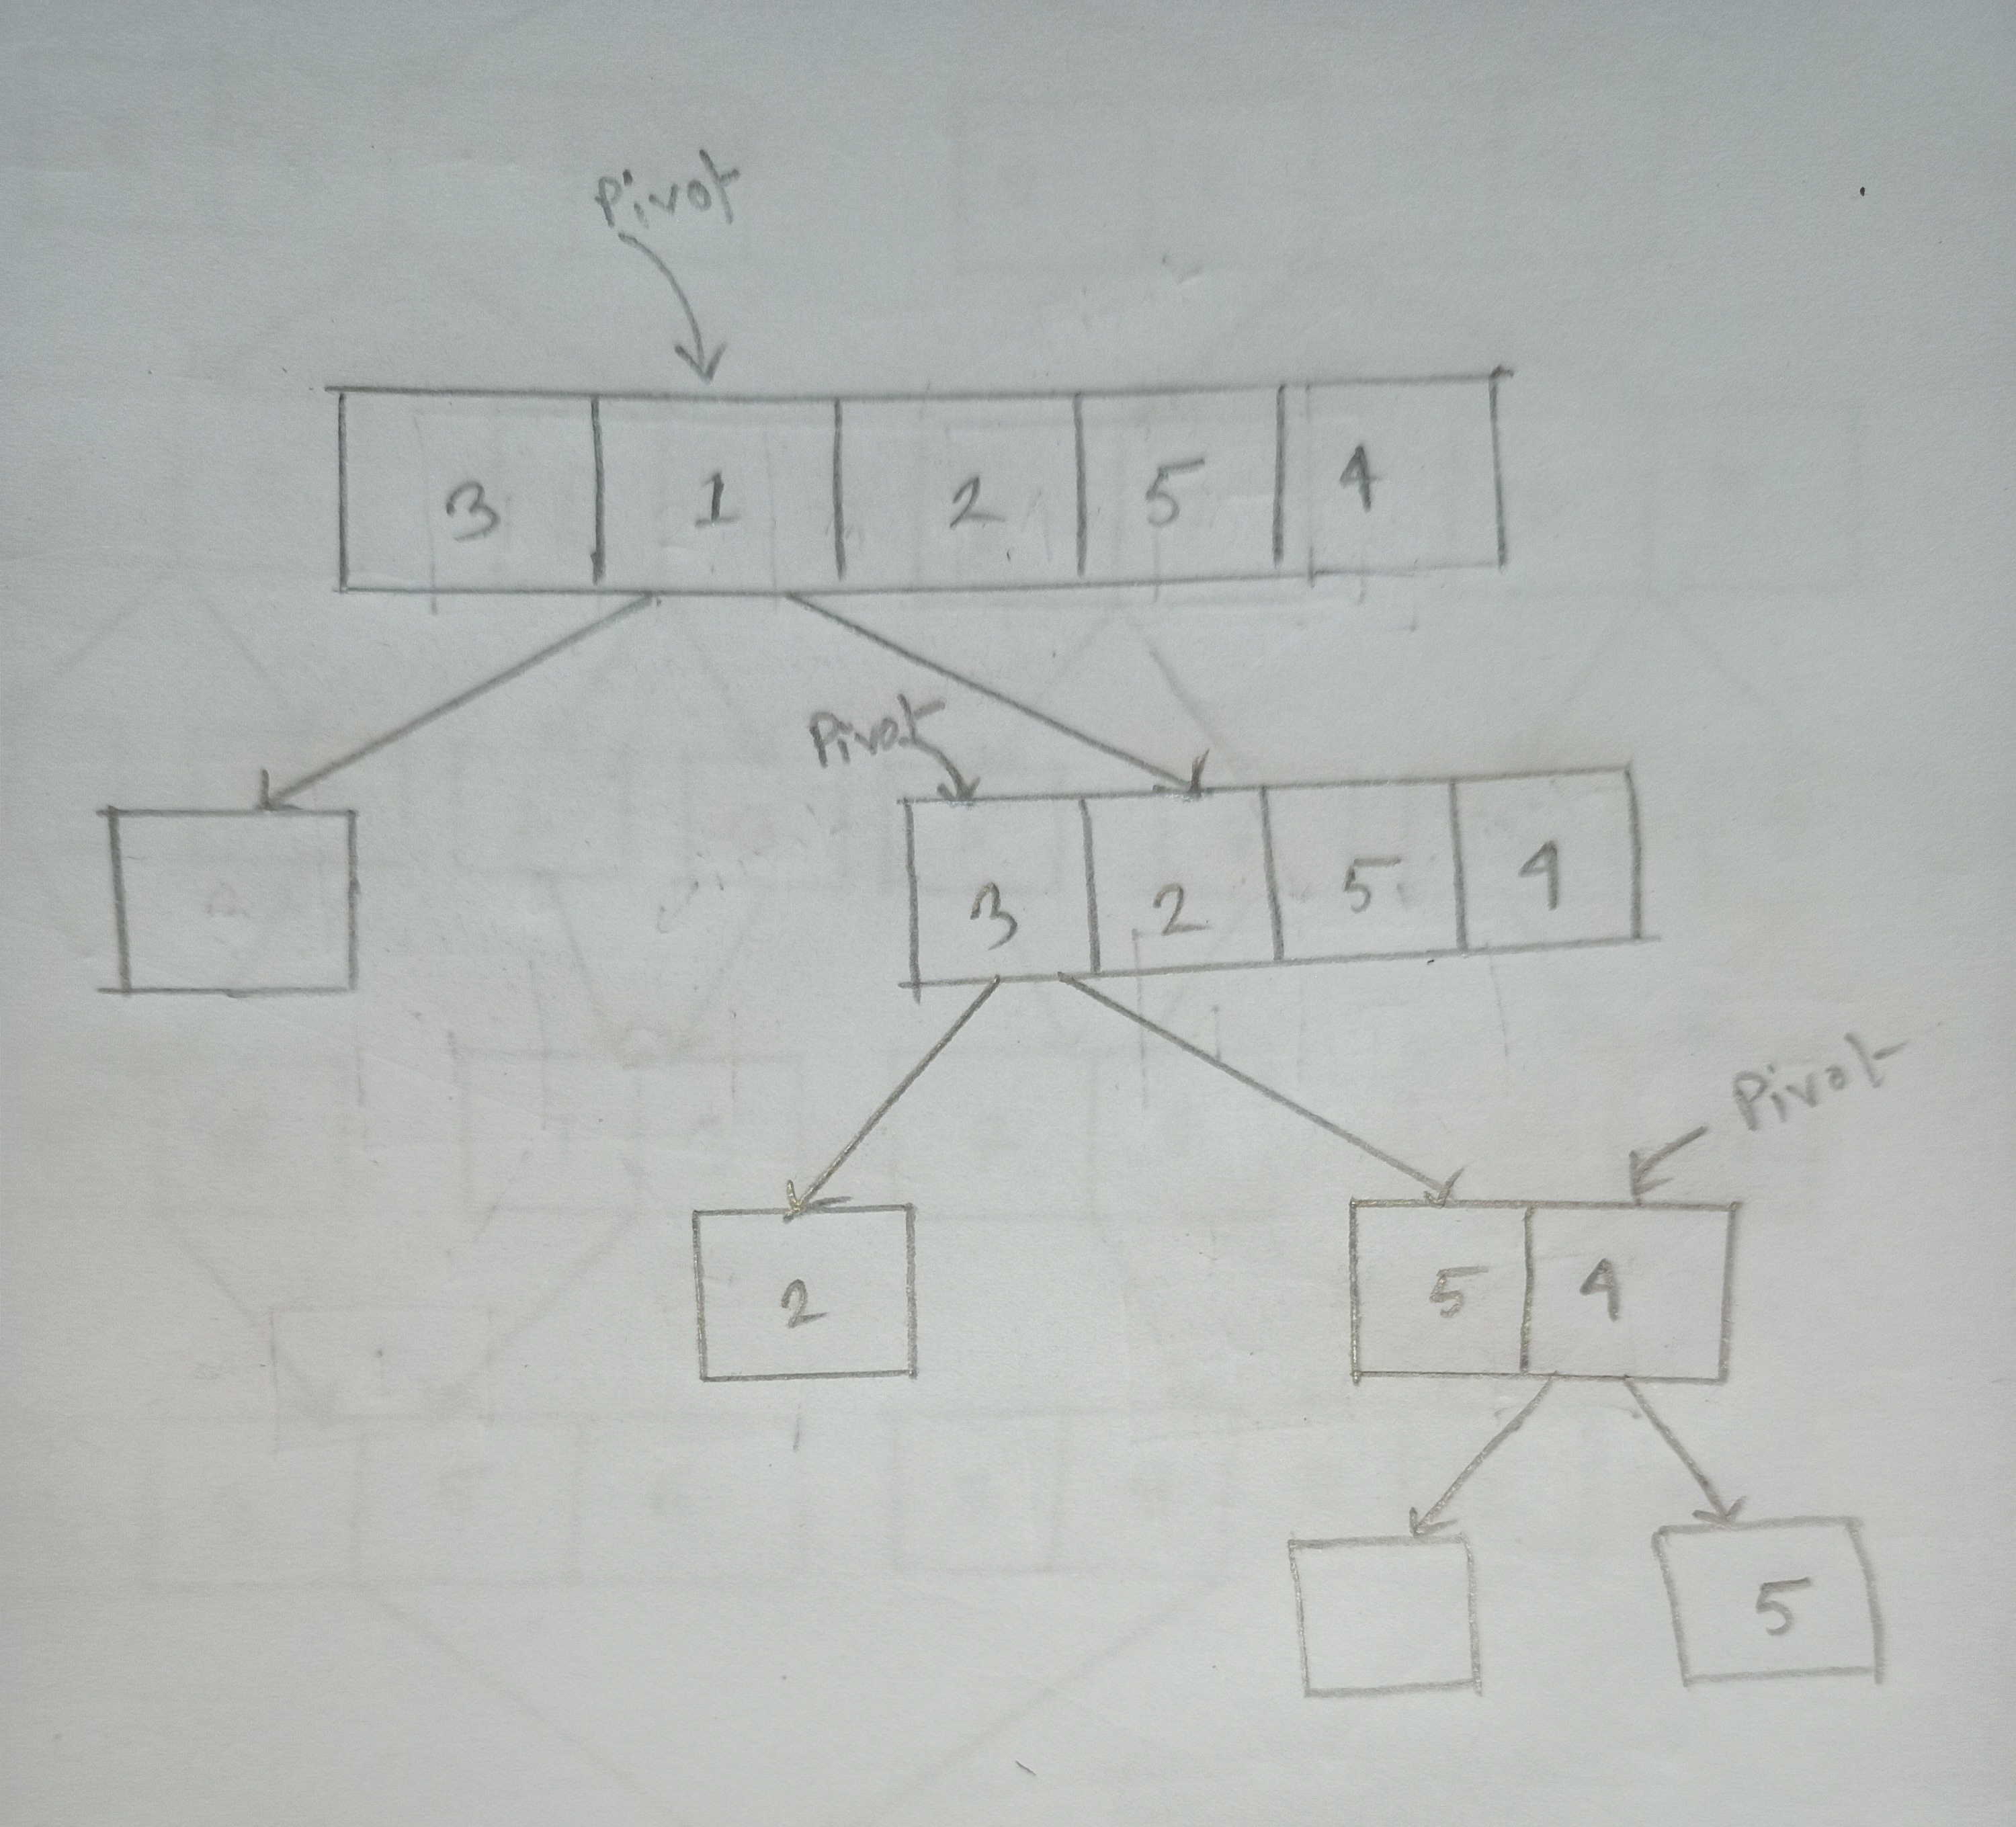 Pivot
3 1 2 5 4
Pivot
3 2 5 4
Pivot
2
5 4
5